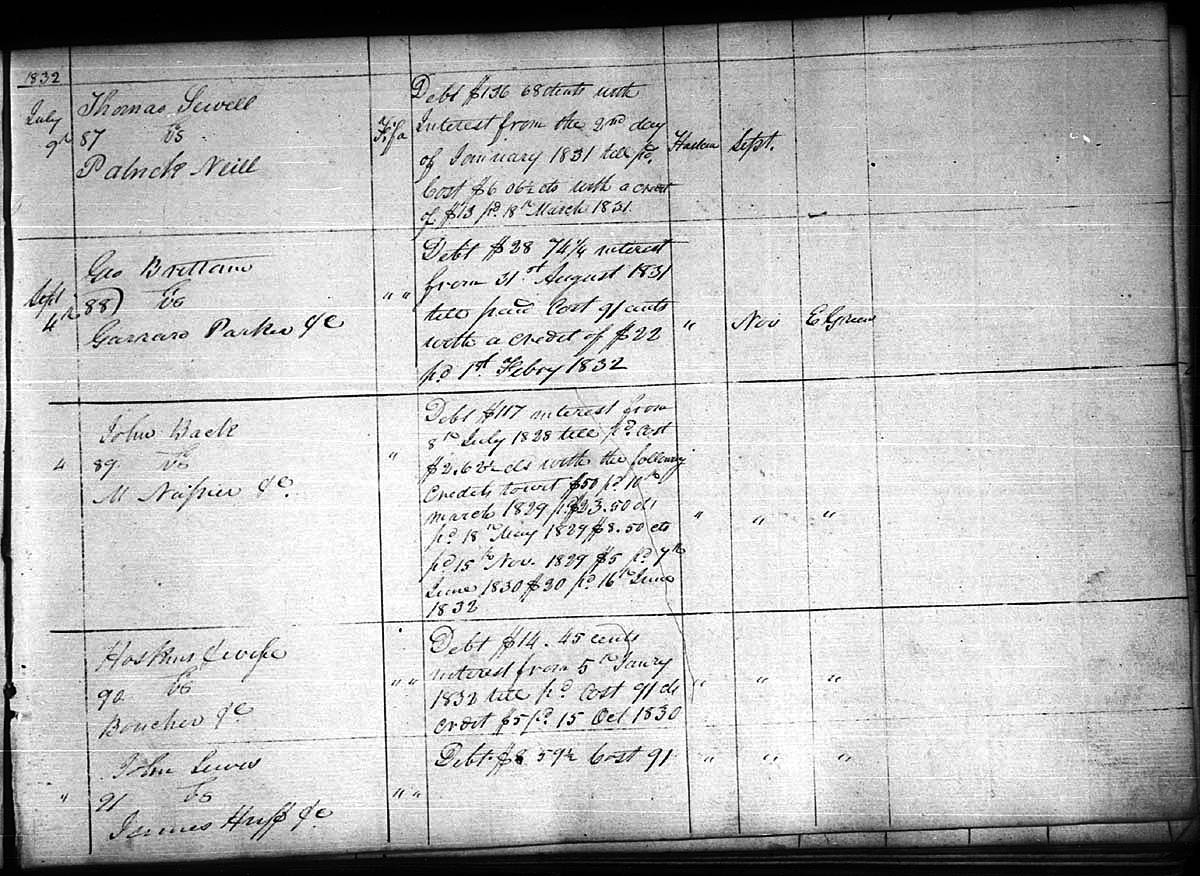 1832
July 9th
Thomas Sewell
87 vs
Patrick Neill
Fi fa
Debt $136 68 cents with
Interest from the 2nd day
of January 1831 till pd.
Cost $6 06½ cts with a credit
of $13 pd 18th March 1831
Harlan
Sept.
Sept 4th
Geo Brittain
88) vs
Garrard Parker &c
" "
Debt $28 74¼ interest
from 31st August 1831
till paid Cost 91 cents
with a credit of $22
pd 1st Febry 1832
"
Nov
E Green
4
John Back
89 vs
M Napier &c.
"
Debt $117 interest from
8th July 1828 till pd Cost
$2.62½ cts with the following
Credits towit $50 pd 10th
march 1829 pd $23.50 cts
pd 18th May 1829 $8.50 cts
pd 15th Nov. 1829 $5 pd 7th
June 1830 $30 pd 16th June
1832
" " "
Hoskins & wife
90 vs
Boucher &c
" "
Debt $14.45 cents
interest from 5th Janry
1832 till pd Cost 91 cts
credit $5 pd 15 Oct 1830
" " "
"
John Lewis
91 vs
James Huff &c
" "
Debt $8 59½ Cost 91
" " "